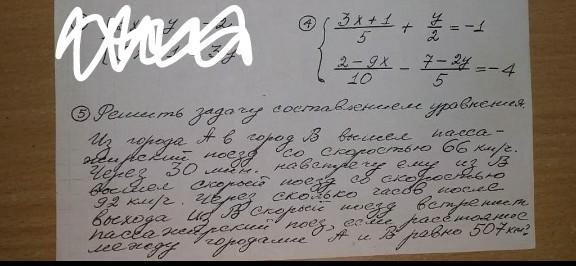 ④ { (3x+1)/5 + y/2 = -1
(2-9x)/10 - (7-2y)/5 = -4
⑤ Решить задачу составлением уравнения.
Из города А в город В вышел пасса-
жирский поезд со скоростью 66 км/ч.
Через 30 мин. навстречу ему из В
вышел скорый поезд со скоростью
92 км/ч. Через сколько часов после
выхода из В скорый поезд встретит
пассажирский поезд, если расстояние
между городами А и В равно 507 км?